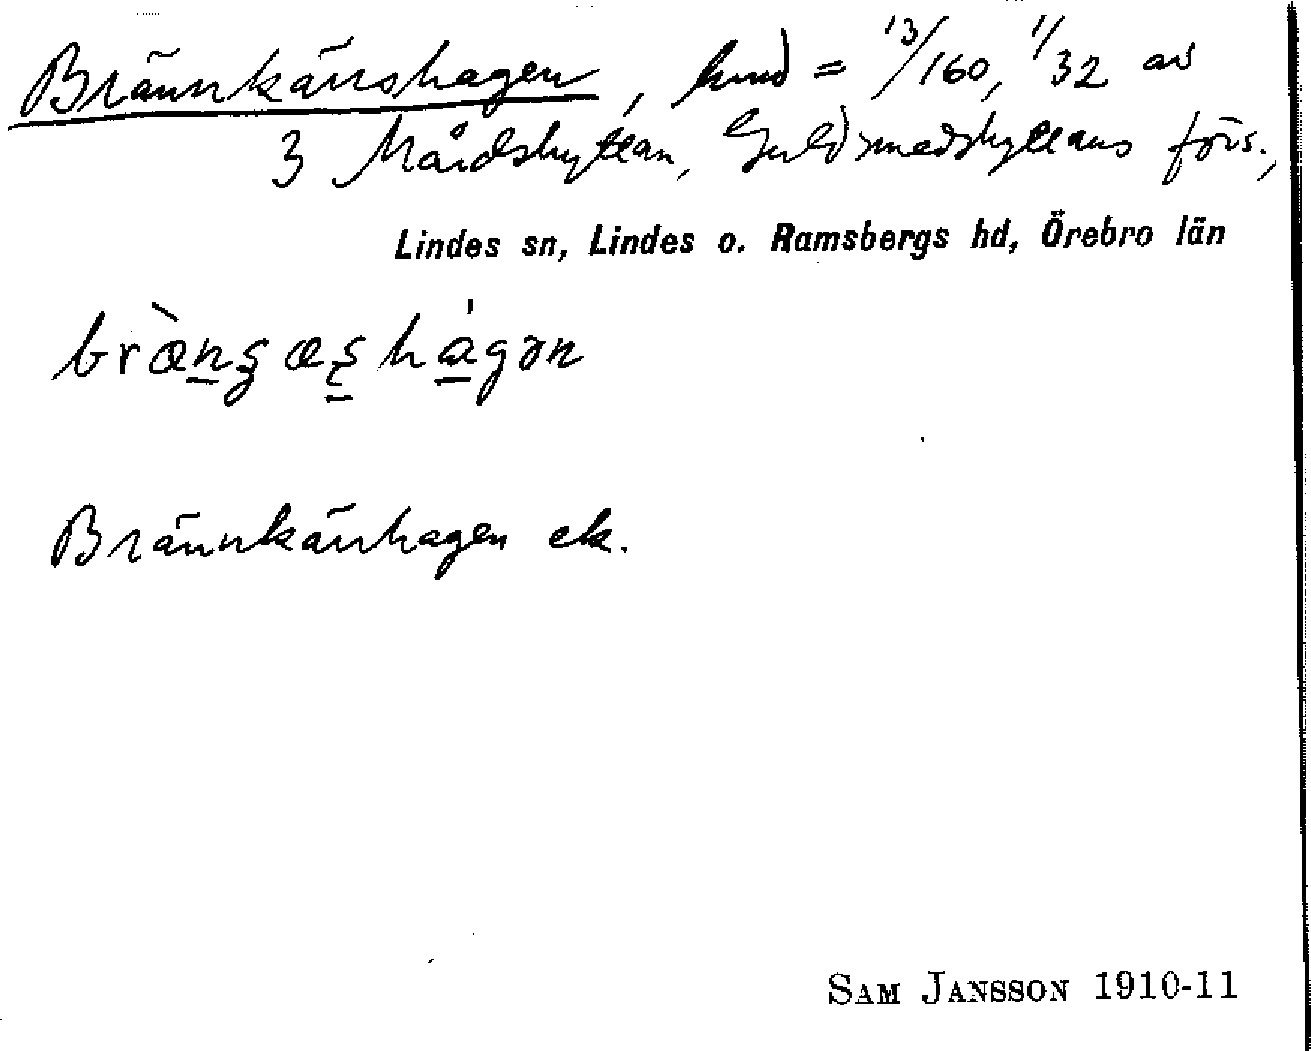 Brännkärrshagen, hmd = 13/160, 1/32 av
3 Mårdshyttan, Guldsmedshyttans förs.,
Lindes sn, Lindes o. Ramsbergs hd, Örebro län
hagən
Brännkärrhagen ek.
SAM JANSSON 1910-11